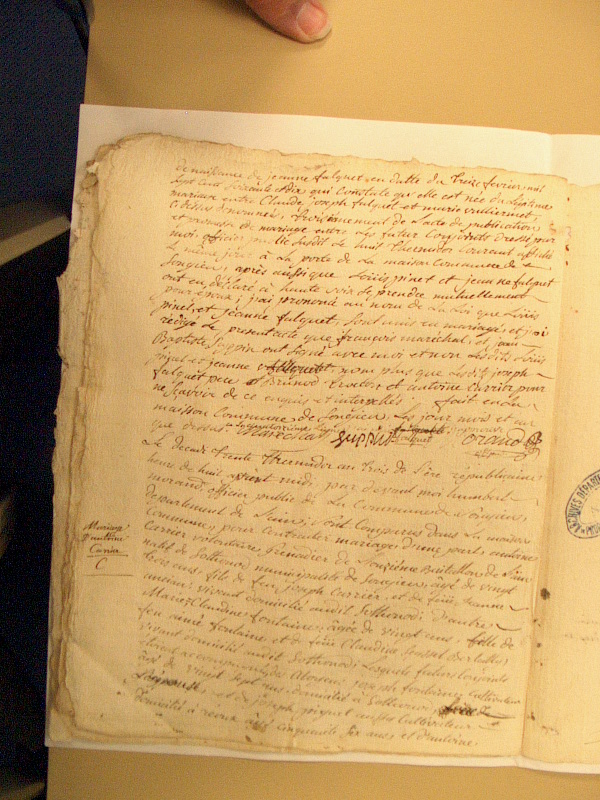 de naissance de jeanne fulquet en datte du treize fevrier mil
sept cent soixante et dix qui constate qu'elle est née du légitime
mariage entre Claude joseph fulquet et marie vuillermet,
ci dessus denommés, troisiemement de l'acte de publication
et promesse de mariage entre les futur conjoints dressé par
moi officier public susdit le huit thermidor courant affiché
le même jour à la porte de la maison Commune de
Songieu, après aussi que Louis pinet et jeanne fulquet
ont eu déclaré à haute voix se prendre mutuellement
pour époux, j'ai prononcé au nom de la Loi que Louis
pinet, et jeanne fulquet, sont unis en mariage, et j'ai
rédigé le présent acte que françois marechal, et jean
Baptiste suppin ont signé avec moi et non lesdits Louis
pinet et jeanne fulquet non plus que lesdits joseph
fulquet pere et antoine Carrier pour
ne sçavoir de ce enquis et interpellés fait en la
maison Commune de Songieu, les jour mois et an
que dessus Marechal suppin morand
Le Decadi trente thermidor an trois de l'ère républicaine
heure de huit avant midi, par devant moi humbert
morand officier public de la Commune de Songieu,
département de l'ain, sont comparus dans la maison
Commune, pour contracter mariage d'une part, antoine
Carrier volontaire grenadier de onzième Bataillon de l'ain
natif de Sothonod municipalité de Songieu, âgé de vingt
trois ans, fils de feu joseph Carrier, et de feüe jeanne
vivant domicilié audit Sothonod; d'autre
Marie Claudine fontaine, âgée de vingt ans, fille de
feu aimé fontaine, et de feüe Claudine
vivant domiciliés audit Sothonod Lesquels futurs conjoints
étoient accompagnés de joseph fontaine Cultivateur
âgé de vingt sept ans domicilié à Sothonod
et de joseph aussi Cultivateur
Domicilié à âgé cinquante six ans et d'antoine
Mariage
d'antoine
Carrier
C
ARCHIVES DEPARTE